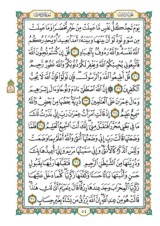 يَوْمَ تَجِدُ كُلُّ نَفْسٍ مَّا عَمِلَتْ مِنْ خَيْرٍ مُّحْضَرًا وَمَا عَمِلَتْ
مِن سُوءٍ تَوَدُّ لَوْ أَنَّ بَيْنَهَا وَبَيْنَهُ أَمَدًا بَعِيدًا وَيُحَذِّرُكُمُ
اللَّهُ نَفْسَهُ وَاللَّهُ رَءُوفٌ بِالْعِبَادِ قُلْ إِن كُنتُمْ تُحِبُّونَ
اللَّهَ فَاتَّبِعُونِي يُحْبِبْكُمُ اللَّهُ وَيَغْفِرْ لَكُمْ ذُنُوبَكُمْ وَاللَّهُ غَفُورٌ
رَّحِيمٌ قُلْ أَطِيعُوا اللَّهَ وَالرَّسُولَ فَإِن تَوَلَّوْا فَإِنَّ اللَّهَ لَا
يُحِبُّ الْكَافِرِينَ إِنَّ اللَّهَ اصْطَفَىٰ آدَمَ وَنُوحًا وَآلَ إِبْرَاهِيمَ
وَآلَ عِمْرَانَ عَلَى الْعَالَمِينَ ذُرِّيَّةً بَعْضُهَا مِن بَعْضٍ وَاللَّهُ
سَمِيعٌ عَلِيمٌ إِذْ قَالَتِ امْرَأَتُ عِمْرَانَ رَبِّ إِنِّي نَذَرْتُ لَكَ
مَا فِي بَطْنِي مُحَرَّرًا فَتَقَبَّلْ مِنِّي إِنَّكَ أَنتَ السَّمِيعُ الْعَلِيمُ
فَلَمَّا وَضَعَتْهَا قَالَتْ رَبِّ إِنِّي وَضَعْتُهَا أُنثَىٰ وَاللَّهُ أَعْلَمُ بِمَا
وَضَعَتْ وَلَيْسَ الذَّكَرُ كَالْأُنثَىٰ وَإِنِّي سَمَّيْتُهَا مَرْيَمَ وَإِنِّي أُعِيذُهَا بِكَ
وَذُرِّيَّتَهَا مِنَ الشَّيْطَانِ الرَّجِيمِ فَتَقَبَّلَهَا رَبُّهَا بِقَبُولٍ
حَسَنٍ وَأَنبَتَهَا نَبَاتًا حَسَنًا وَكَفَّلَهَا زَكَرِيَّا كُلَّمَا دَخَلَ عَلَيْهَا
زَكَرِيَّا الْمِحْرَابَ وَجَدَ عِندَهَا رِزْقًا قَالَ يَا مَرْيَمُ أَنَّىٰ لَكِ هَٰذَا
قَالَتْ هُوَ مِنْ عِندِ اللَّهِ إِنَّ اللَّهَ يَرْزُقُ مَن يَشَاءُ بِغَيْرِ حِسَابٍ